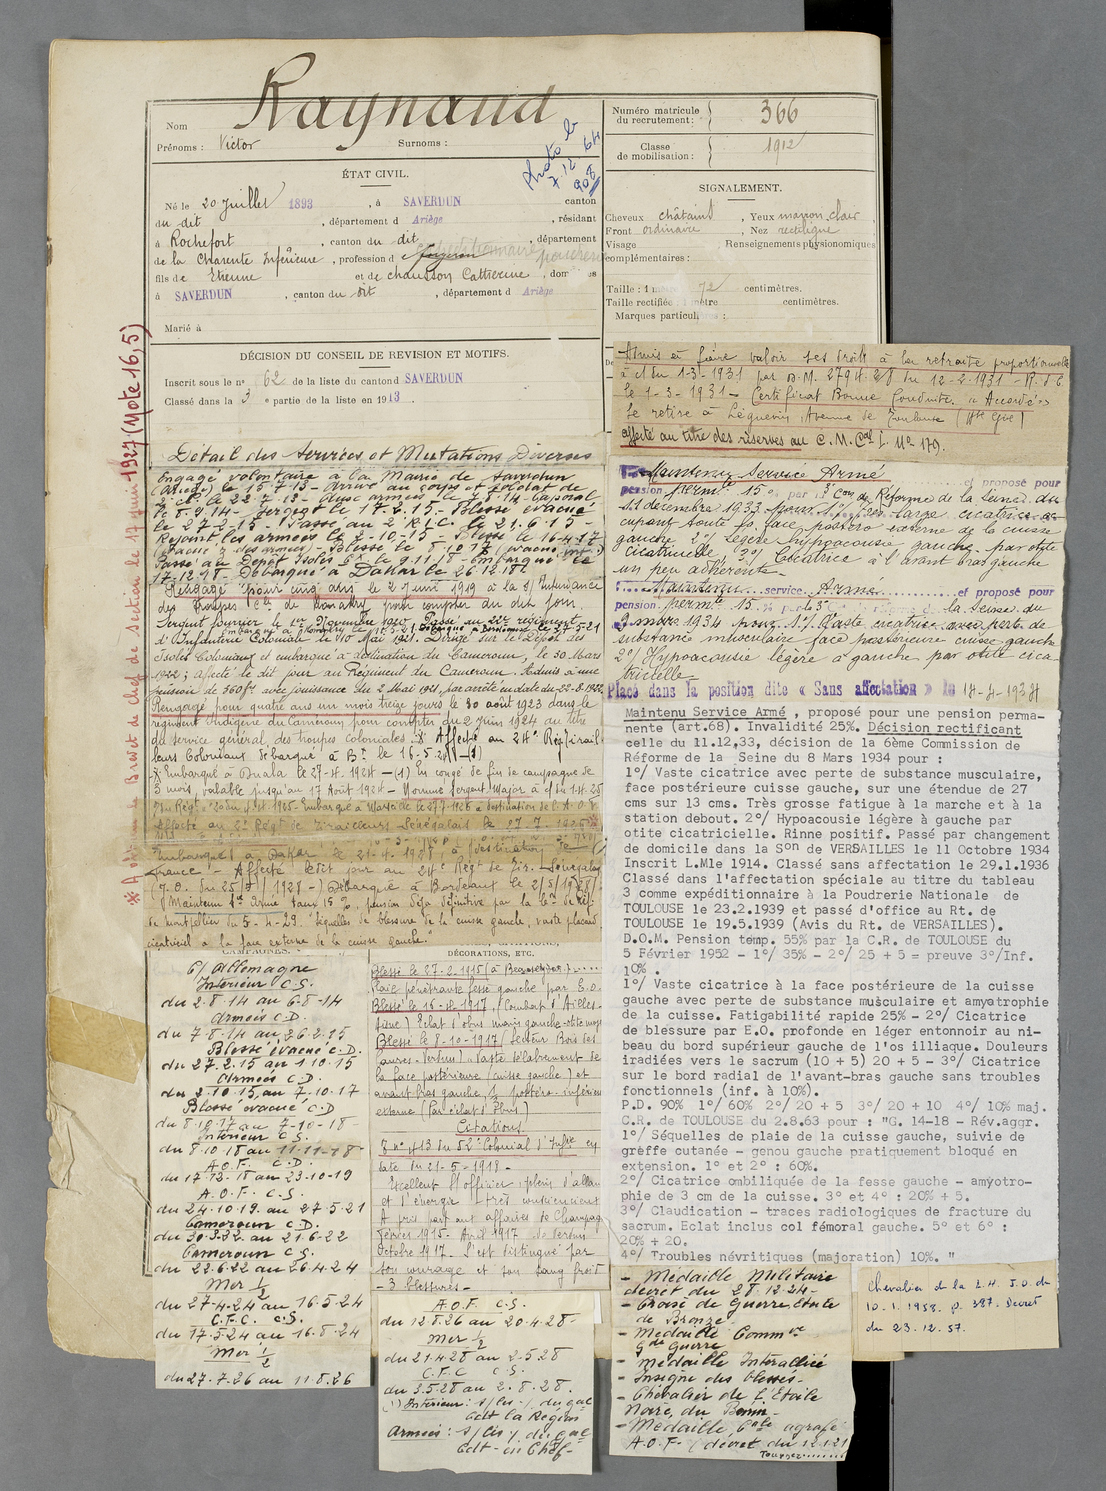 Raynaud
Nom
Prénoms : Victor Surnoms :
Photo le
7.12.64
Numéro matricule
du recrutement : 366
Classe
de mobilisation : 1912
ÉTAT CIVIL.
Né le 20 Juillet 1893, à SAVERDUN canton
du dit, département d Ariège, résidant
à Rochefort, canton du dit, département
de la Charente Inférieure, profession d
fils de Etienne et de Chausson Catherine, dom es
à SAVERDUN, canton du dit, département d Ariège
Marié à
SIGNALEMENT.
Cheveux châtains, Yeux marron clair,
Front ordinaire, Nez rectiligne
Visage Renseignements physionomiques
complémentaires :
Taille : 1 m 72 centimètres.
Taille rectifiée : 1 mètre centimètres.
Marques particulières :
DÉCISION DU CONSEIL DE REVISION ET MOTIFS.
Inscrit sous le n° 62 de la liste du canton d SAVERDUN
Classé dans la 3 e partie de la liste en 1913.
Brevet de Chef de Section le 17 juin 1927 (Note 16,5)
Détail des Services et Mutations Diverses
Engagé volontaire à la Mairie de Saverdun
(Ariège) le 15-7-13 - Arrivé au corps et soldat de
2e cl. le 22-7-13 - Aux armées le 7-8-14 - Caporal
le 8-9-14 - Sergent le 17-2-15 - Blessé évacué
le 27-2-15 - Passé au 2e R.I.C. le 21-6-15 -
Rejoint les armées le 2-10-15 - Blessé le 16-4-17
- Blessé le 8-10-17 (évacué int.)
Passé au Dépôt Isolés Cx le 9.11 - Embarqué le
17-12-18 - Débarqué à Dakar le 26-12-18
Rengagé pour cinq ans le 2 Juin 1919 à la s/ Intendance
des Troupes Cles de Konakry pour compter du dit jour.
Sergent fourrier le 1er Novembre 1920. Passé au 22e régiment
d'Infanterie Coloniale le 10 Mai 1921. Dirigé sur le Dépôt des
Isolés Coloniaux et embarqué à destination du Cameroun, le 30 Mars
1922 ; affecté le dit jour au Régiment du Cameroun. Admis à une
pension de 360f avec jouissance du 2 Mai 1921, par arrêté en date du 22-8-1922
Rengagé pour quatre ans un mois treize jours le 30 août 1923 dans le
régiment Indigène du Caméroun pour compter du 2 Juin 1924 au titre
du service général, des troupes coloniales. X Affecté au 24e Rég. Tirail-
leurs Coloniaux débarqué à Bx le 16-5-24 - (1)
X Embarqué à Duala le 27-4-1924 - (1) En congé de fin de campagne de
3 mois, valable jusqu'au 17 Août 1924 - Nommé Sergent Major à c/ du 1-4-25
Affecté au 2e Régt de Tirailleurs Sénégalais le 27-7-1926
Embarqué à Dakar le 21-4-1928 à destination de
France - Affecté ledit jour au 24e Régt de Tir. Sénégalais
(J.O. du 25/4/1928 -) Débarqué à Bordeaux le 2/5/1928/.
Maintenu Sce Armé taux 15 %, pension déjà définitive par la Con de Réf.
de Montpellier du 5-4-29 "Séquelles de blessure de la cuisse gauche, vaste placard
cicatriciel à la face externe de la cuisse gauche."
Admis à faire valoir ses droits à la retraite proportionnelle
à c/ du 1-3-1931 par D.M. 2794.2/8 du 12-2-1931 - R. d. C.
le 1-3-1931 - Certificat Bonne Conduite "Accordé"
Se retire à Léguevin, Avenue de Toulouse (Hte Gne)
affecté au titre des réserves au C.M. Cal I. No 179.
Maintenu Service Armé et proposé pour
pension permte 15 % par 3e Con de Réforme de la Seine du
11 décembre 1933 pour 1° Très large cicatrice oc-
cupant toute la face postéro externe de la cuisse
gauche 2° Légère hypoacousie gauche par otite
cicatricielle, 3° Cicatrice à l'avant bras gauche
un peu adhérente -
Maintenu service Armé et proposé pour
pension permte 15 % par la 3e de la Seine du
8 mars 1934 pour 1°/ Vaste cicatrice avec perte de
substance musculaire face postérieure cuisse gauche
2°/ Hypoacousie légère à gauche par otite cica-
tricielle -
Placé dans la position dite « Sans affectation » le 17-4-1934
Maintenu Service Armé, proposé pour une pension perma-
nente (art.68). Invalidité 25%. Décision rectificant
celle du 11.12.33, décision de la 6ème Commission de
Réforme de la Seine du 8 Mars 1934 pour :
1°/ Vaste cicatrice avec perte de substance musculaire,
face postérieure cuisse gauche, sur une étendue de 27
cms sur 13 cms. Très grosse fatigue à la marche et à la
station debout. 2°/ Hypoacousie légère à gauche par
otite cicatricielle. Rinne positif. Passé par changement
de domicile dans la Son de VERSAILLES le 11 Octobre 1934
Inscrit L.Mle 1914. Classé sans affectation le 29.1.1936
Classé dans l'affectation spéciale au titre du tableau
3 comme expéditionnaire à la Poudrerie Nationale de
TOULOUSE le 23.2.1939 et passé d'office au Rt. de
TOULOUSE le 19.5.1939 (Avis du Rt. de VERSAILLES).
D.O.M. Pension temp. 55% par la C.R. de TOULOUSE du
5 Février 1952 - 1°/ 35% - 2°/ 25 + 5 = preuve 3°/Inf.
10% .
1°/ Vaste cicatrice à la face postérieure de la cuisse
gauche avec perte de substance musculaire et amyotrophie
de la cuisse. Fatigabilité rapide 25% - 2°/ Cicatrice
de blessure par E.O. profonde en léger entonnoir au ni-
beau du bord supérieur gauche de l'os illiaque. Douleurs
iradiées vers le sacrum (10 + 5) 20 + 5 - 3°/ Cicatrice
sur le bord radial de l'avant-bras gauche sans troubles
fonctionnels (inf. à 10%).
P.D. 90% 1°/ 60% 2°/ 20 + 5 3°/ 20 + 10 4°/ 10% maj.
C.R. de TOULOUSE du 2.8.63 pour : "G. 14-18 - Rév.aggr.
1°/ Séquelles de plaie de la cuisse gauche, suivie de
greffe cutanée - genou gauche pratiquement bloqué en
extension. 1° et 2° : 60%.
2°/ Cicatrice ombiliquée de la fesse gauche - amyotro-
phie de 3 cm de la cuisse. 3° et 4° : 20% + 5.
3°/ Claudication - traces radiologiques de fracture du
sacrum. Eclat inclus col fémoral gauche. 5° et 6° :
20% + 20.
4°/ Troubles névritiques (majoration) 10%. "
CAMPAGNES.
C/ Allemagne
Intérieur C.S.
du 2-8-14 au 6-8-14
Armées C.D.
du 7-8-14 au 26-2-15
Blessé évacué C.D.
du 27-2-15 au 1-10-15
Armées C.D.
du 2-10-15 au 7-10-17
Blessé évacué C.D
du 8-10-17 au 7-10-18 -
Intérieur C.S.
du 8-10-18 au 11-11-18 -
A.O.F. C.D.
du 17-12-18 au 23-10-19
A.O.F. C.S.
du 24-10-19 au 27-5-21
Cameroun C.D.
du 30-3-22 au 21-6-22
Cameroun C.S.
du 22-6-22 au 26-4-24
Mer 1/2
du 27-4-24 au 16-5-24
C.F.C. C.S.
du 17-5-24 au 16-8-24
Mer 1/2
du 27-7-26 au 11-8-26
DÉCORATIONS, ETC.
Blessé le 27-2-1915 (à Beauséjour)
Plaie pénétrante fesse gauche par E.O.
Blessé le 16-4-1917, (Combat d'Ailles-
Blessé le 8-10-1917 (Secteur Bois des
Caures - Verdun) - Vaste délabrement de
la face postérieure (cuisse gauche) et
avant bras gauche, postéro-inférieure
externe (Par éclats d'Obus)
Citations
O no 413 du 52e Colonial d'Infrie en
date du 21-5-1918 -
Excellent S/officier, plein d'allant
et d'énergie. Très consciencieux
A pris part aux affaires de Champagne
février 1915 - Avril 1917 - de Verdun
Octobre 1917 - S'est distingué par
son courage et son sang froid
- 3 blessures -
A.O.F. C.S.
du 12-8-26 au 20-4-28 -
Mer 1/2
du 21-4-28 au 2-5-28
C.F.C C.S.
du 3-5-28 au 2-8-28.
(1) Intérieur : s/Cis /. du gal
Cdt la Région
Armées : s/Cis /. du gal
Cdt - en Chef -
- Médaille Militaire
décret du 28-12-24 -
- Croix de Guerre, Etoile
de Bronze -
- Médaille Commve
Gde Guerre
- Médaille Interalliée
- Insigne des blessés -
- Chevalier de l'Etoile
Noire du Bénin -
- Médaille Cale agrafe
A.O.F. (décret du 12-1-21
Tournez
Chevalier de la L.H. J.O. du
10.1.1958. p. 387. Décret
du 23.12.57.